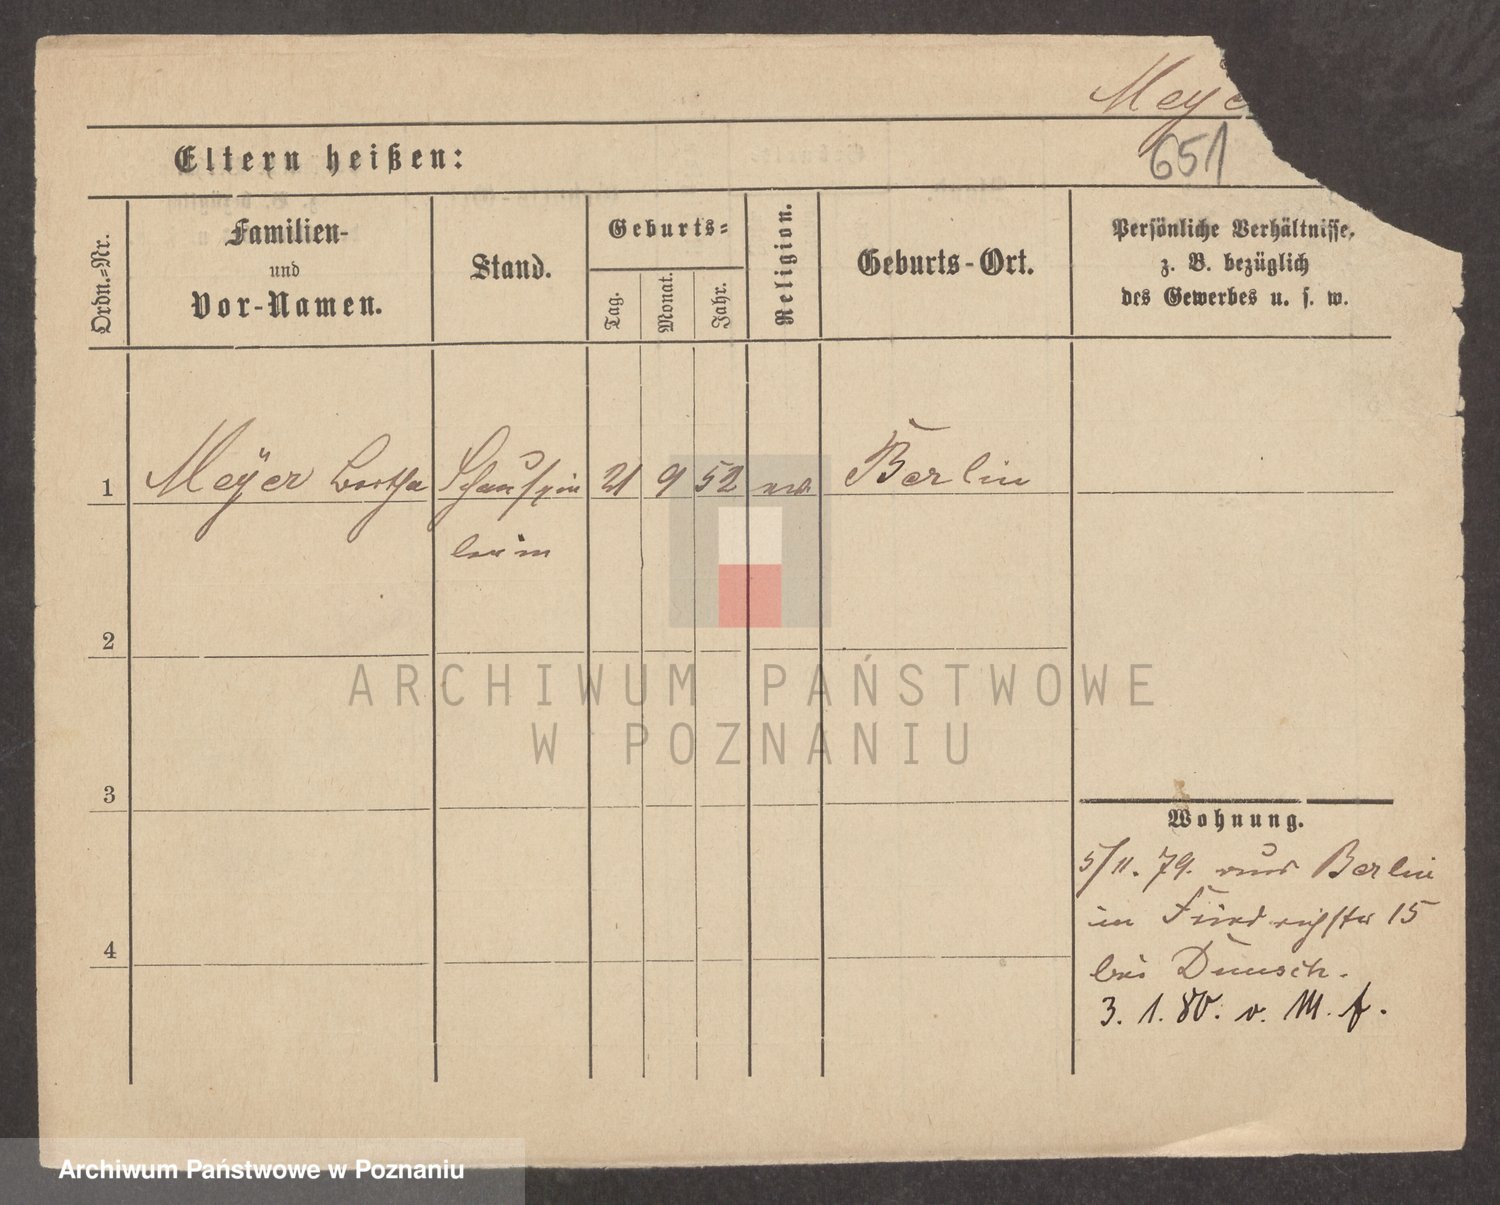 Meye
651
Eltern heißen:
Ordn.-Nr.
Familien-
und
Vor-Namen.
Stand.
Geburts-
Tag.
Monat.
Jahr.
Religion.
Geburts-Ort.
Persönliche Verhältnisse,
z. B. bezüglich
des Gewerbes u. s. w.
1 Meÿer Bertha Schauspie 21 9 52 Berlin
lerin
2
3
4
Wohnung.
5/11. 79. aus Berlin
in Friedrichstr 15
bei
3. 1. 80. v. M. f.
ARCHIWUM PAŃSTWOWE
W POZNANIU
Archiwum Państwowe w Poznaniu